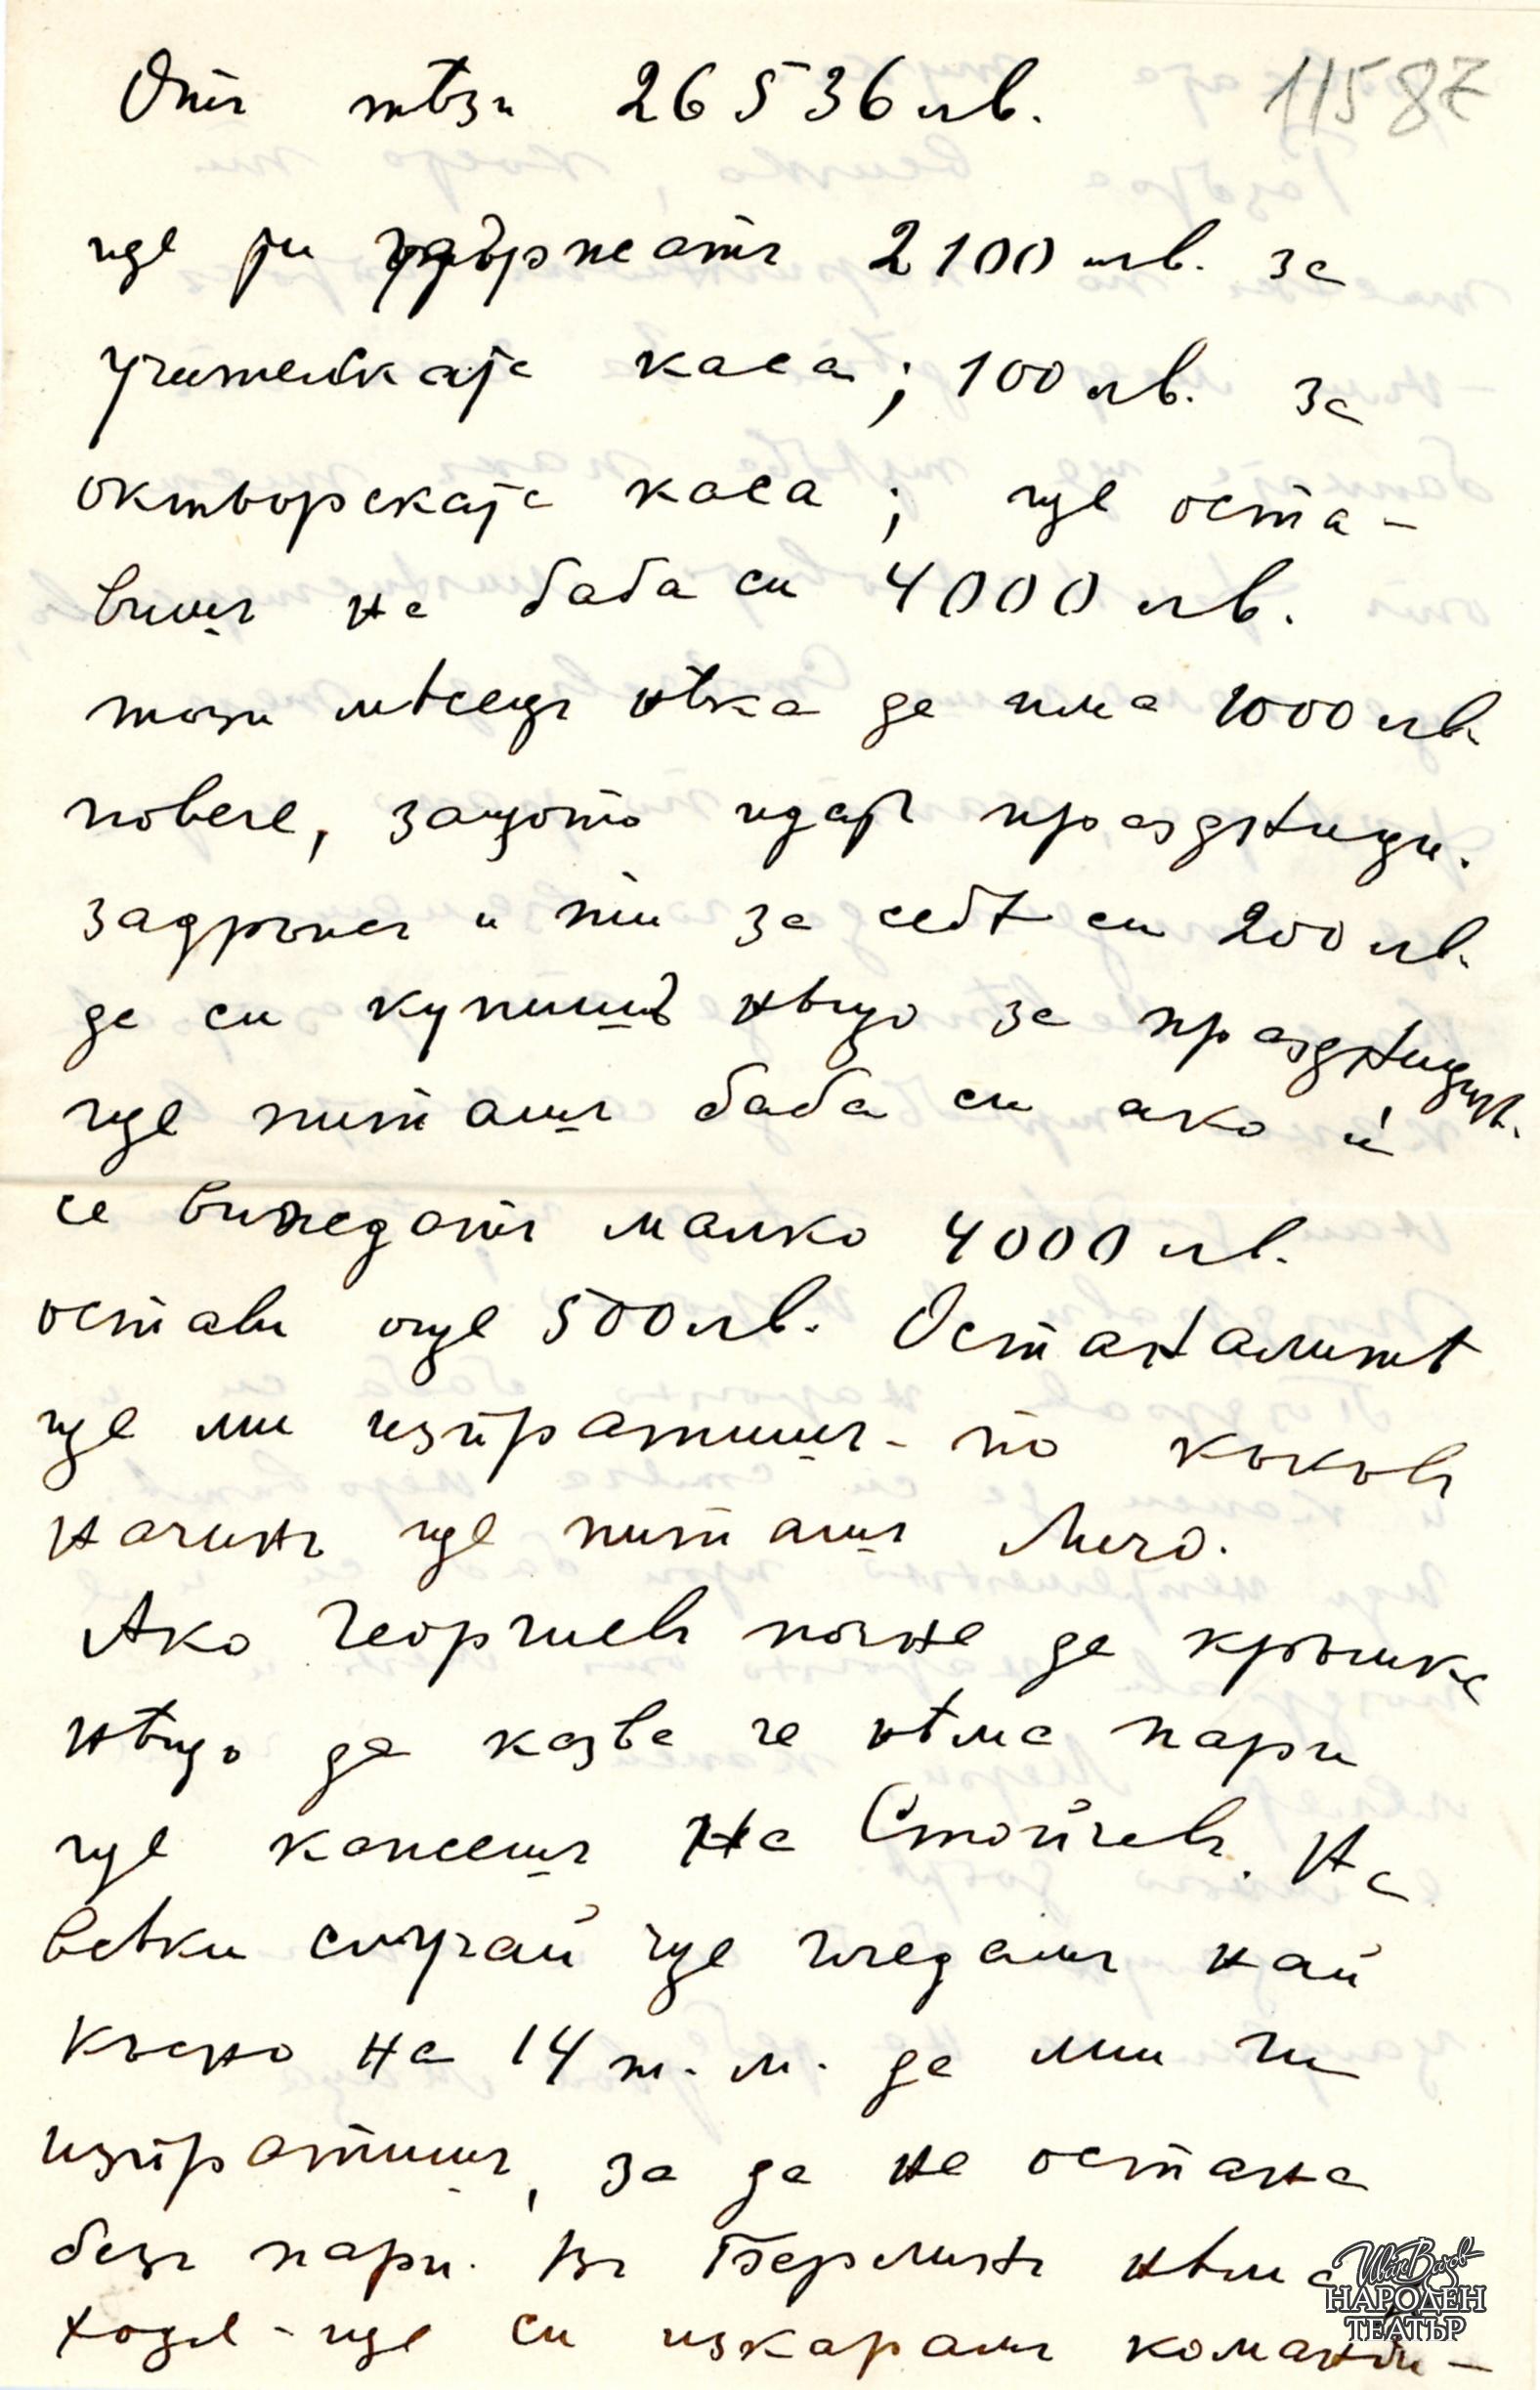 Отъ тѣзи 26536 лв. 11587
ще ги удържатъ 2100 лв. за
учителската каса; 100 лв. за
актьорската каса; ще оста-
вишъ на баба си 4000 лв.
този мѣсецъ нѣка да има 1000 лв.
повече, защото идатъ праздници.
задръжъ и ти за себѣ си 200 лв.
да си купишъ нѣщо за праздницитѣ.
ще питашъ баба си ако ѝ
се виждатъ малко 4000 лв.
остави още 500 лв. Останалитѣ
ще ми изпратишъ - по какъвъ
начинъ ще питашъ Личо.
Ако Георгиевъ почне да кръшка
нѣщо да казва че нѣма пари
ще кажешъ на Стойчевъ. На
всѣки случай ще гледашъ най
късно на 14 т. м. да ми ги
изпратишъ, за да не остана
безъ пари. Въ Берлинъ нѣма
ходя - ще си изкарамъ команди-
Иван Вазов
НАРОДЕН
ТЕАТЪР